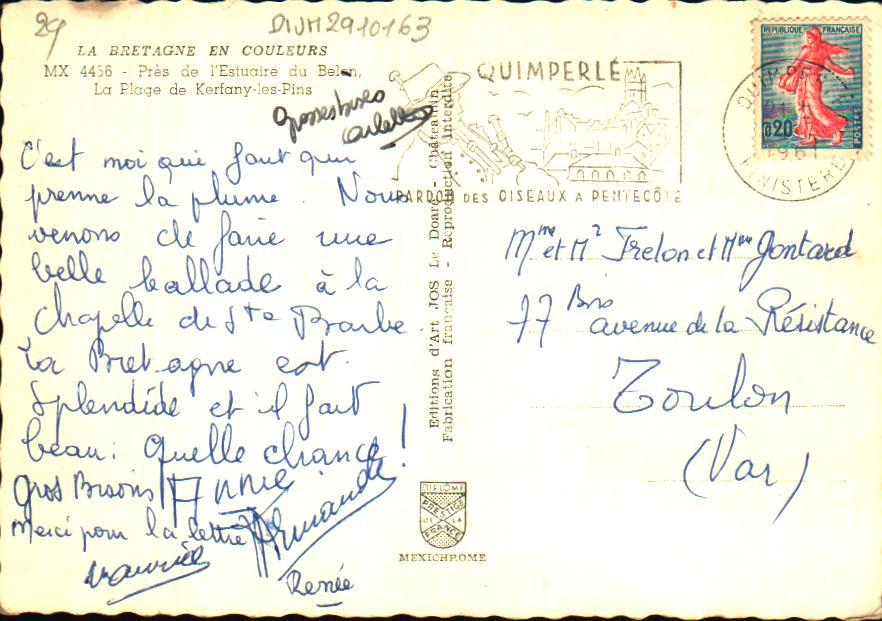 29
DIVM2910163
LA BRETAGNE EN COULEURS
MX 4456 - Près de l'Estuaire du Belon,
La Plage de Kerfany-les-Pins
Grosses bises
Arlette
C'est moi qui faut qui
prenne la plume. Nous
venons de faire une
belle ballade à la
Chapelle de Ste Barbe.
La Bretagne est
Splendide et il fait
beau: quelle chance!
Gros Baisers Annie
Merci pour la lettre Armande
Maurice
Renée
Editions d'Art JOS Le Doaré - Châteaulin
Fabrication française - Reproduction interdite
DIPLÔME
PRESTIGE
DE LA
FRANCE
MEXICHROME
QUIMPERLÉ
PARDON DES OISEAUX A PENTECÔTE
REPUBLIQUE FRANÇAISE
0,20
POSTES
QUIMPERLE
1961
FINISTERE
Mme et Mr Trelon et Mme Gontard
77 Bis avenue de la Résistance
Toulon
(Var)